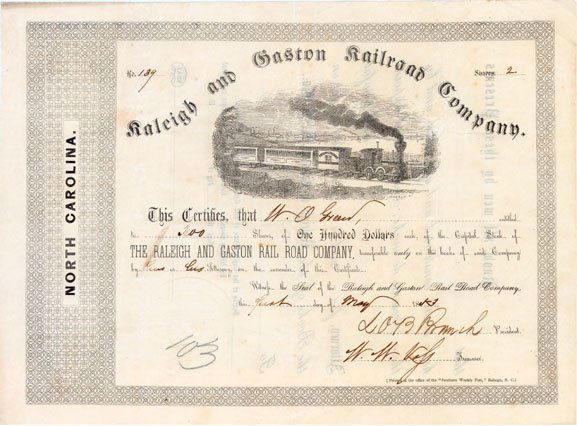 No. 139
Shares 2
Raleigh and Gaston Railroad Company.
NORTH CAROLINA.
This Certifies, that W. O.
to Two Shares, of One Hundred Dollars each, of the Capital Stock of
THE RALEIGH AND GASTON RAIL ROAD COMPANY, transferable only on the books of said Company
by or Attorney, on the surrender of this Certificate.
Witness the Seal of the Raleigh and Gaston Rail Road Company,
this first day of May 1853
L O B Branch President.
W. W. Vass Treasurer.
103
[Printed at the office of the "Southern Weekly Post," Raleigh, N. C.]